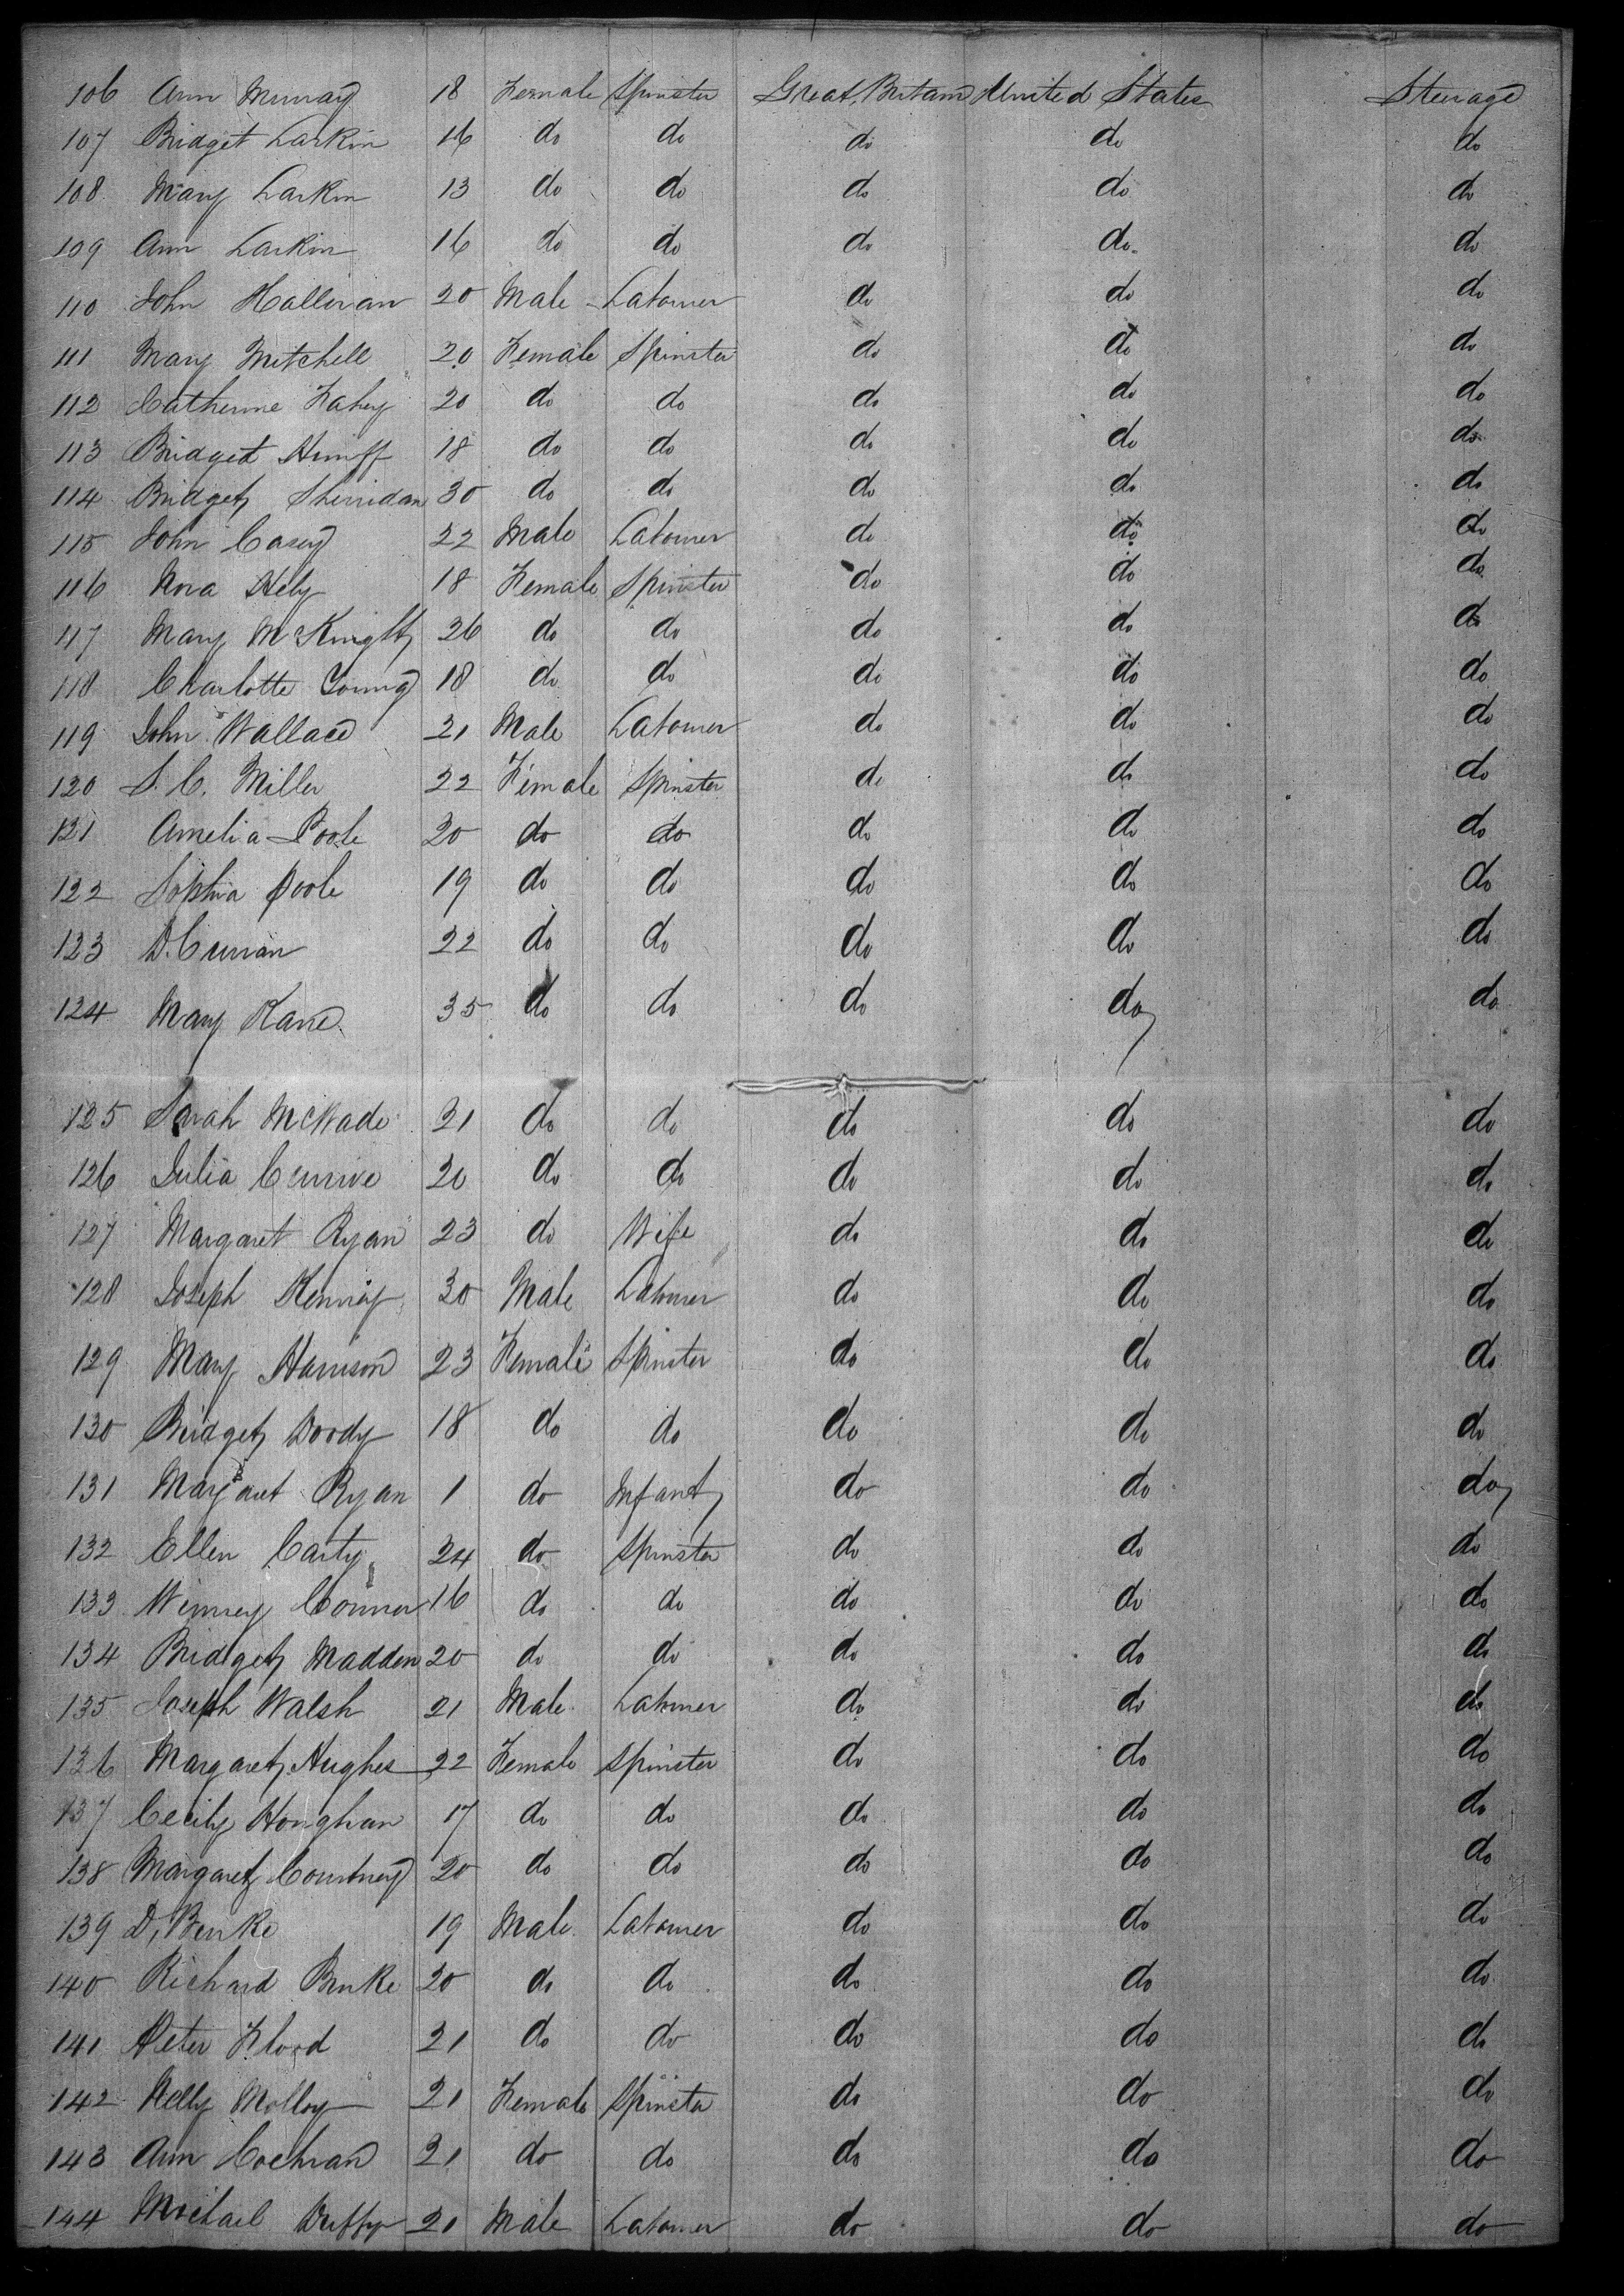 106 Ann Murray 18 Female Spinster Great Britain United States Steerage
107 Bridget Larkin 16 do do do do do
108 Mary Larkin 13 do do do do do
109 Ann Larkin 16 do do do do do
110 John Halleran 20 Male Labourer do do do
111 Mary Mitchell 20 Female Spinster do do do
112 Catherine Fahey 20 do do do do do
113 Bridget 18 do do do do do
114 Bridget Sherridan 30 do do do do do
115 John Casey 22 Male Labourer do do do
116 Nora Hely 18 Female Spinster do do do
117 Mary McKnight 26 do do do do do
118 Charlotte Young 18 do do do do do
119 John Wallace 21 Male Labourer do do do
120 S. C. Miller 22 Female Spinster do do do
121 Amelia Poole 20 do do do do do
122 Sophia Poole 19 do do do do do
123 D. Curran 22 do do do do do
124 Mary Kane 35 do do do do do
125 Sarah McWade 21 do do do do do
126 Julia 20 do do do do do
127 Margaret Ryan 23 do Wife do do do
128 Joseph Kenney 30 Male Labourer do do do
129 Mary Harrison 23 Female Spinster do do do
130 Bridget Doody 18 do do do do do
131 Margaret Ryan 1 do Infant do do do
132 Ellen Carty 24 do Spinster do do do
133 Winney Connor 16 do do do do do
134 Bridget Madden 20 do do do do do
135 Joseph Walsh 21 Male Labourer do do do
136 Margaret Hughes 22 Female Spinster do do do
137 Cecily Honghan 17 do do do do do
138 Margaret Courtney 20 do do do do do
139 D. Burke 19 Male Labourer do do do
140 Richard Burke 20 do do do do do
141 Peter Flood 21 do do do do do
142 Nelly Molloy 21 Female Spinster do do do
143 Ann Cochran 21 do do do do do
144 Michael Duffy 21 Male Labourer do do do